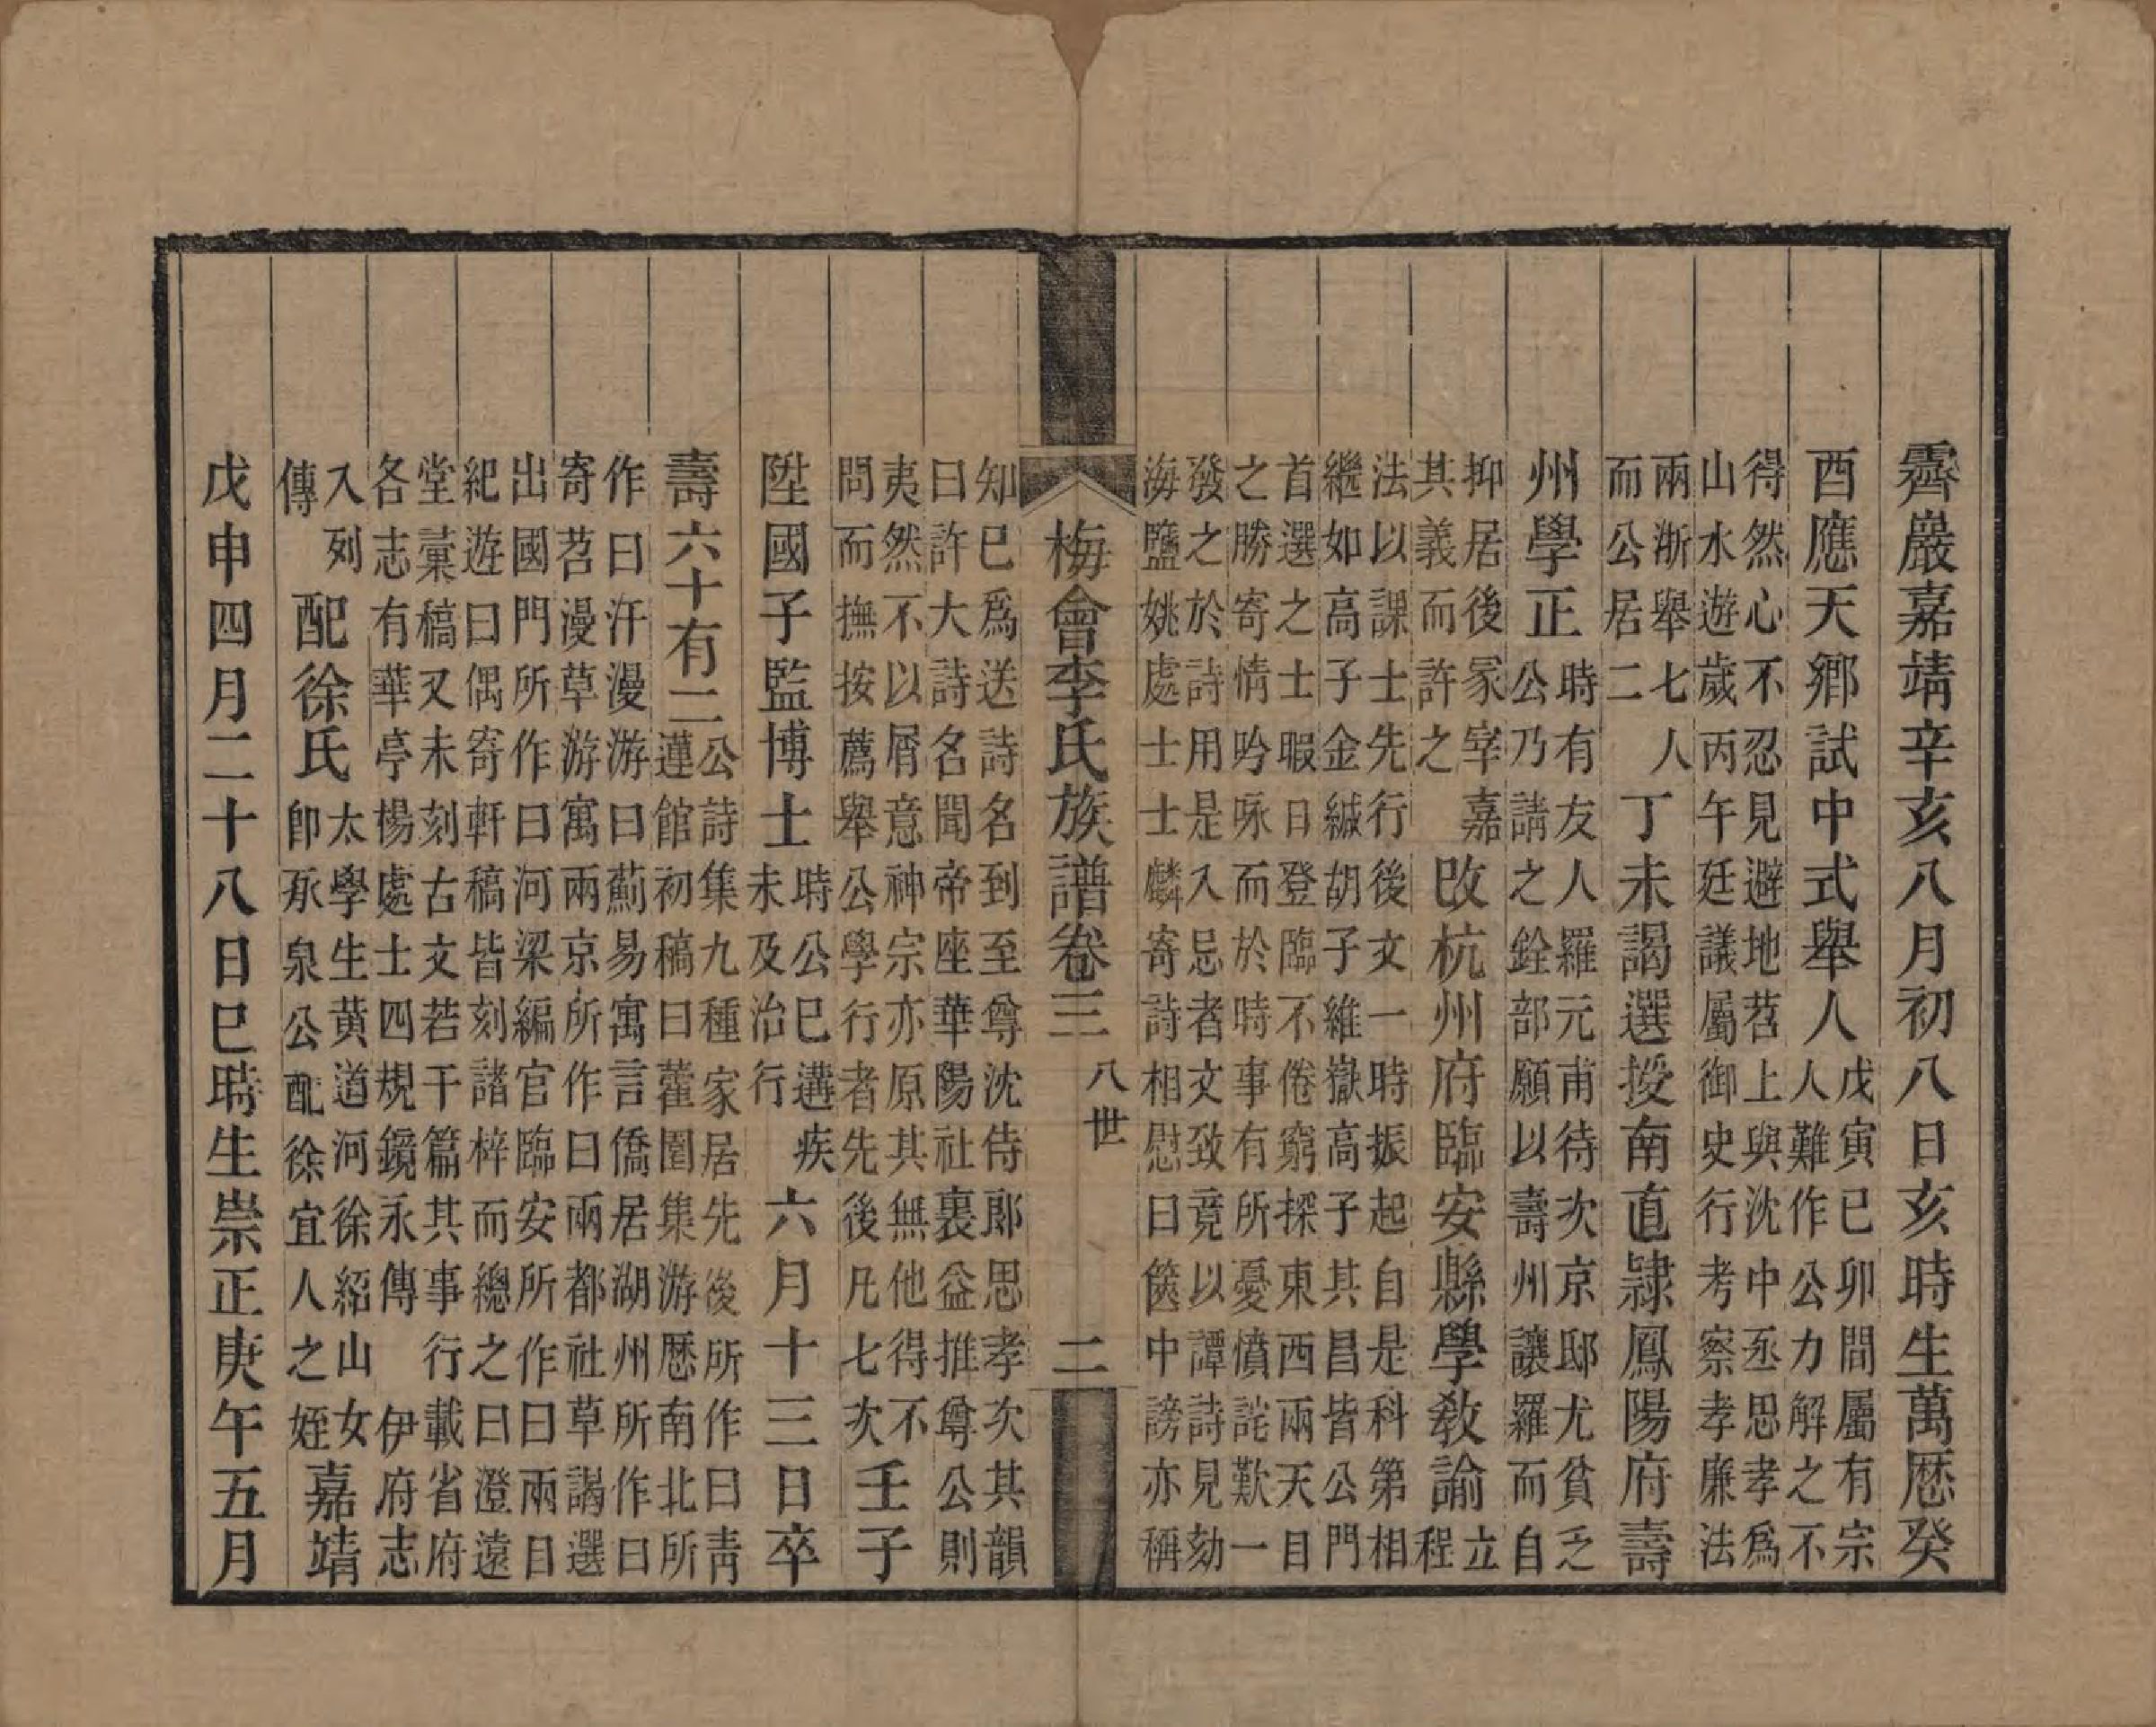 霽巖嘉靖辛亥八月初八日亥時生萬厯癸
酉應天鄉試中式舉人
戊寅己卯間屬有宗
人難作公力解之不
得然心不忍見避地苕上與沈中丞思孝為
山水遊歲丙午廷議屬御史行考察孝廉法
兩浙舉七人
而公居二
丁未謁選授南直隷鳳陽府壽
州學正
時有友人羅元甫待次京邸尤貧乏
公乃請之銓部願以壽州讓羅而自
抑居後冢宰嘉
其義而許之
改杭州府臨安縣學教諭
立
程
法以課士先行後文一時振起自是科第相
繼如高子金緘胡子維嶽高子其昌皆公門
首選之士暇日登臨不倦窮探東西兩天目
之勝寄情吟咏而於時事有所憂憤詫歎一
發之於詩用是入忌者文致竟以譚詩見劾
海鹽姚處士士麟寄詩相慰曰篋中謗亦稱
梅會李氏族譜卷三
八世
二
知己爲送詩名到至尊沈侍郎思孝次其韻
曰許大詩名聞帝座華陽社裏益推尊公則
夷然不以屑意神宗亦原其無他得不
問而撫按薦舉公學行者先後凡七次
壬子
陞國子監博士
時公已遘疾
未及治行
六月十三日卒
壽六十有二
公詩集九種家居先後所作曰靑
蓮館初稿曰藿園集游厯南北所
作曰汗漫游曰薊易寓言僑居湖州所作曰
寄苕漫草游寓兩京所作曰兩都社草謁選
出國門所作曰河梁編官臨安所作曰兩目
紀遊曰偶寄軒稿皆刻諸梓而總之曰澄遠
堂彙稿又未刻古文若干篇其事行載省府
各志有華亭楊處士四規鏡永傳
伊府志
入列
傳
配徐氏
太學生黄道河徐紹山女
卽承泉公配徐宜人之姪
嘉靖
戊申四月二十八日巳時生崇正庚午五月